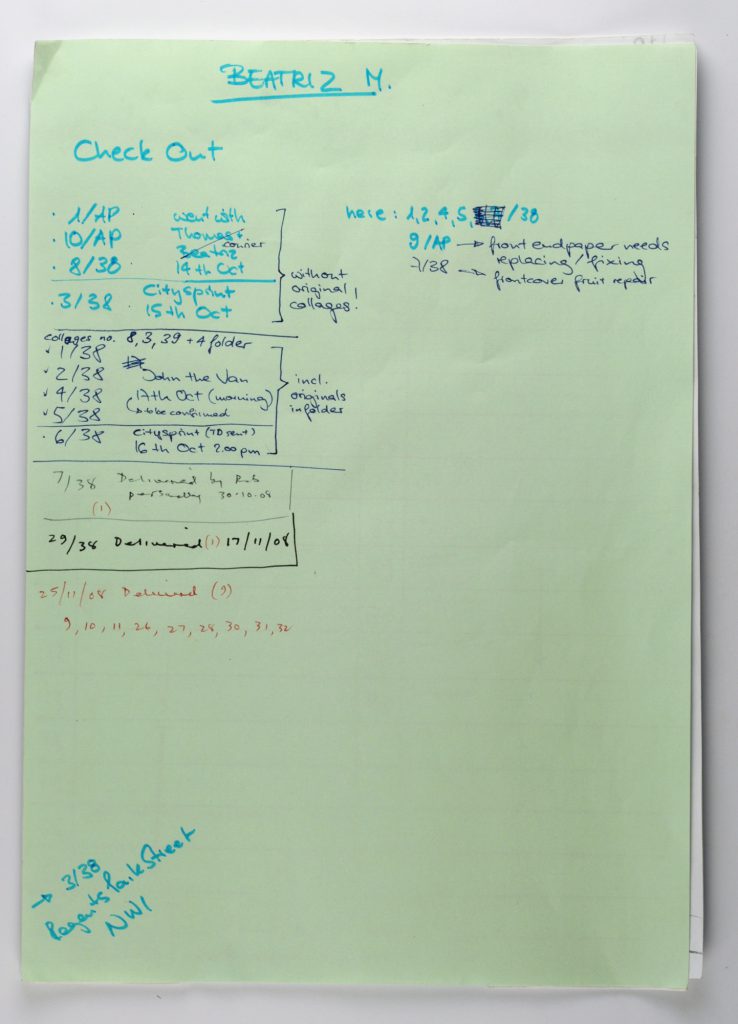 BEATRIZ M.
Check Out
· 1/AP · went with
· 10/AP Thomas +
Beatriz courier
· 8/38 14th Oct
without
original
collages!
· 3/38 Citysprint
15th Oct
collages no. 8, 3, 39 + 4 folder
1/38
2/38 John the Van
4/38 17th Oct (morning)
5/38 to be confirmed
incl.
originals
in folder
· 6/38 Citysprint (TD sent)
16th Oct 2.00pm
7/38 Delivered by Rob
personally 30.10.08
(1)
29/38 Delivered (1) 17/11/08
25/11/08 Delivered (9)
9, 10, 11, 26, 27, 28, 30, 31, 32
here: 1, 2, 4, 5, /38
9/AP → front endpaper needs
replacing/fixing
7/38 → frontcover fruit repair
→ 3/38
Regents Park Street
NW1